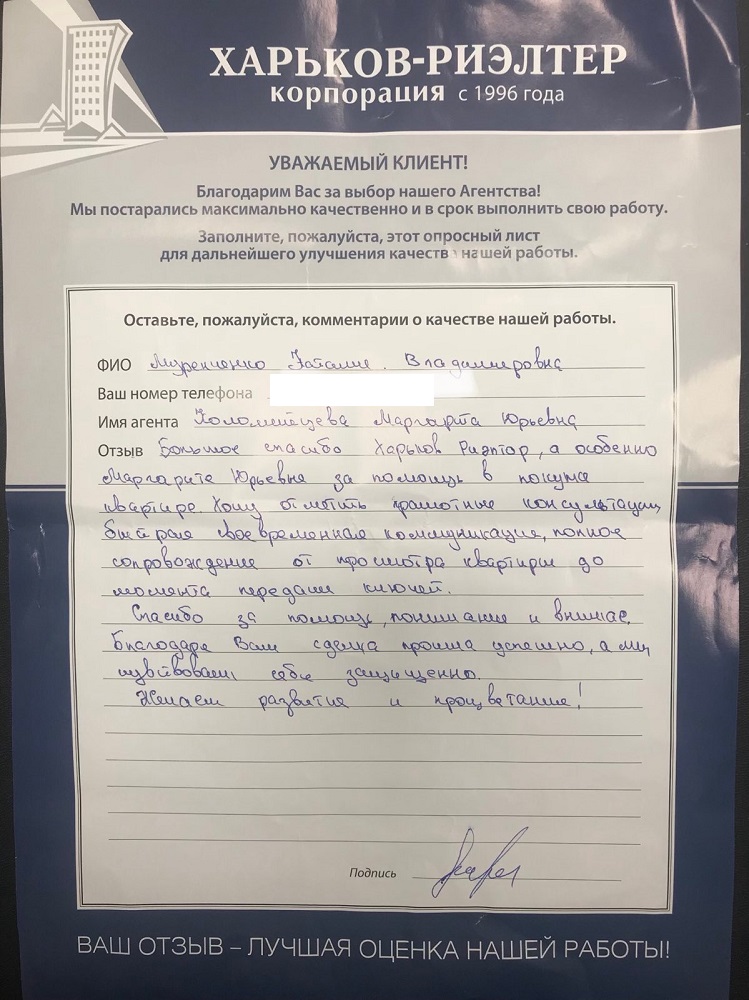 ХАРЬКОВ-РИЭЛТЕР
корпорация с 1996 года
УВАЖАЕМЫЙ КЛИЕНТ!
Благодарим Вас за выбор нашего Агентства!
Мы постарались максимально качественно и в срок выполнить свою работу.
Заполните, пожалуйста, этот опросный лист
для дальнейшего улучшения качества нашей работы.
Оставьте, пожалуйста, комментарии о качестве нашей работы.
ФИО Владимировна
Ваш номер телефона
Имя агента Коломейцева Маргарита Юрьевна
Отзыв Большое спасибо Харьков Риэлтор, а особенно
Маргарите Юрьевне за помощь в покупке
квартире. Хочу отметить грамотные консультации,
быстрая своевременная коммуникация, полное
сопровождение от просмотра квартиры до
момента передачи ключей.
Спасибо за помощь, понимание и
Благодаря Вам сделка прошла успешно, а мы
себя защищенно.
Желаем развития и процветания!
Подпись
ВАШ ОТЗЫВ – ЛУЧШАЯ ОЦЕНКА НАШЕЙ РАБОТЫ!